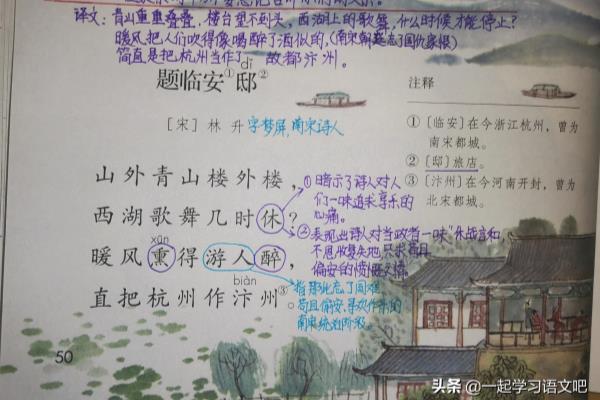 译文：青山重重叠叠，楼台望不到头，西湖上的歌舞，什么时候才能停止？
暖风把人们吹得像喝醉了酒似的，(南宋朝廷忘了国仇家恨)
简直是把杭州当作了 故都汴州。
dǐ
题临安①邸②
[宋] 林 升 字梦屏，南宋诗人
山外青山楼外楼，
西湖歌舞几时休？
xūn
暖风熏得游人醉，
biàn
直把杭州作汴州③。
①暗示了诗人对人
们一味追求享乐的
心痛。
②表现出诗人对当政者一味"休战言和"
不思收复失地，只求苟且
偏安的愤慨之情
指那些忘了国难
苟且偏安、寻欢作乐的
南宋统治阶级。
注释
①〔临安〕在今浙江杭州，曾为
南宋都城。
②〔邸〕旅店。
③〔汴州〕在今河南开封，曾为
北宋都城。
50
头条 @一起学习语文吧